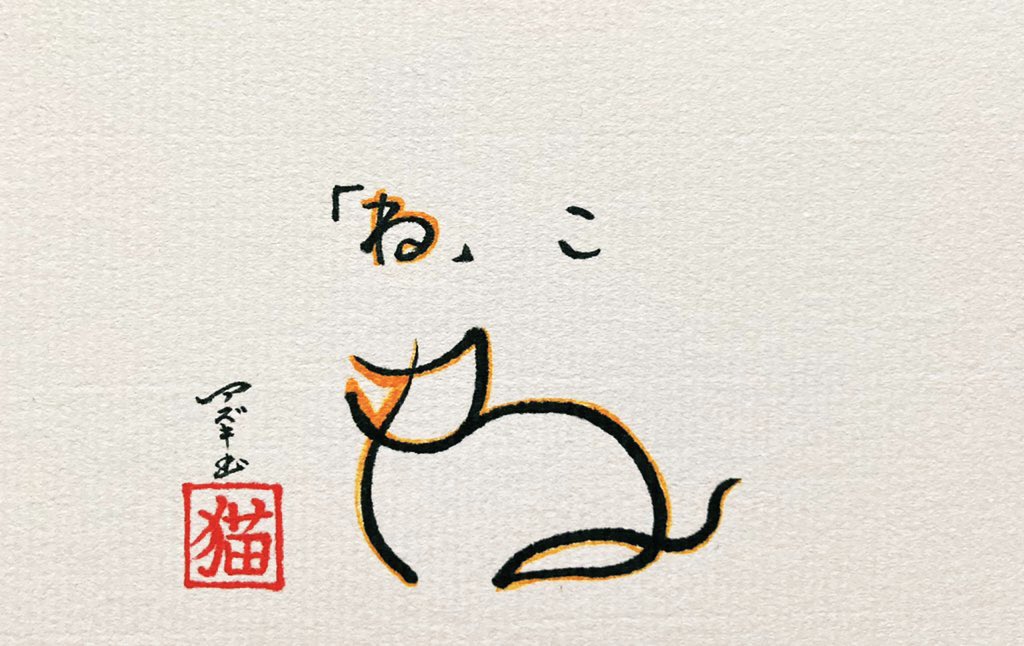 「ね」 こ
アズキ
猫